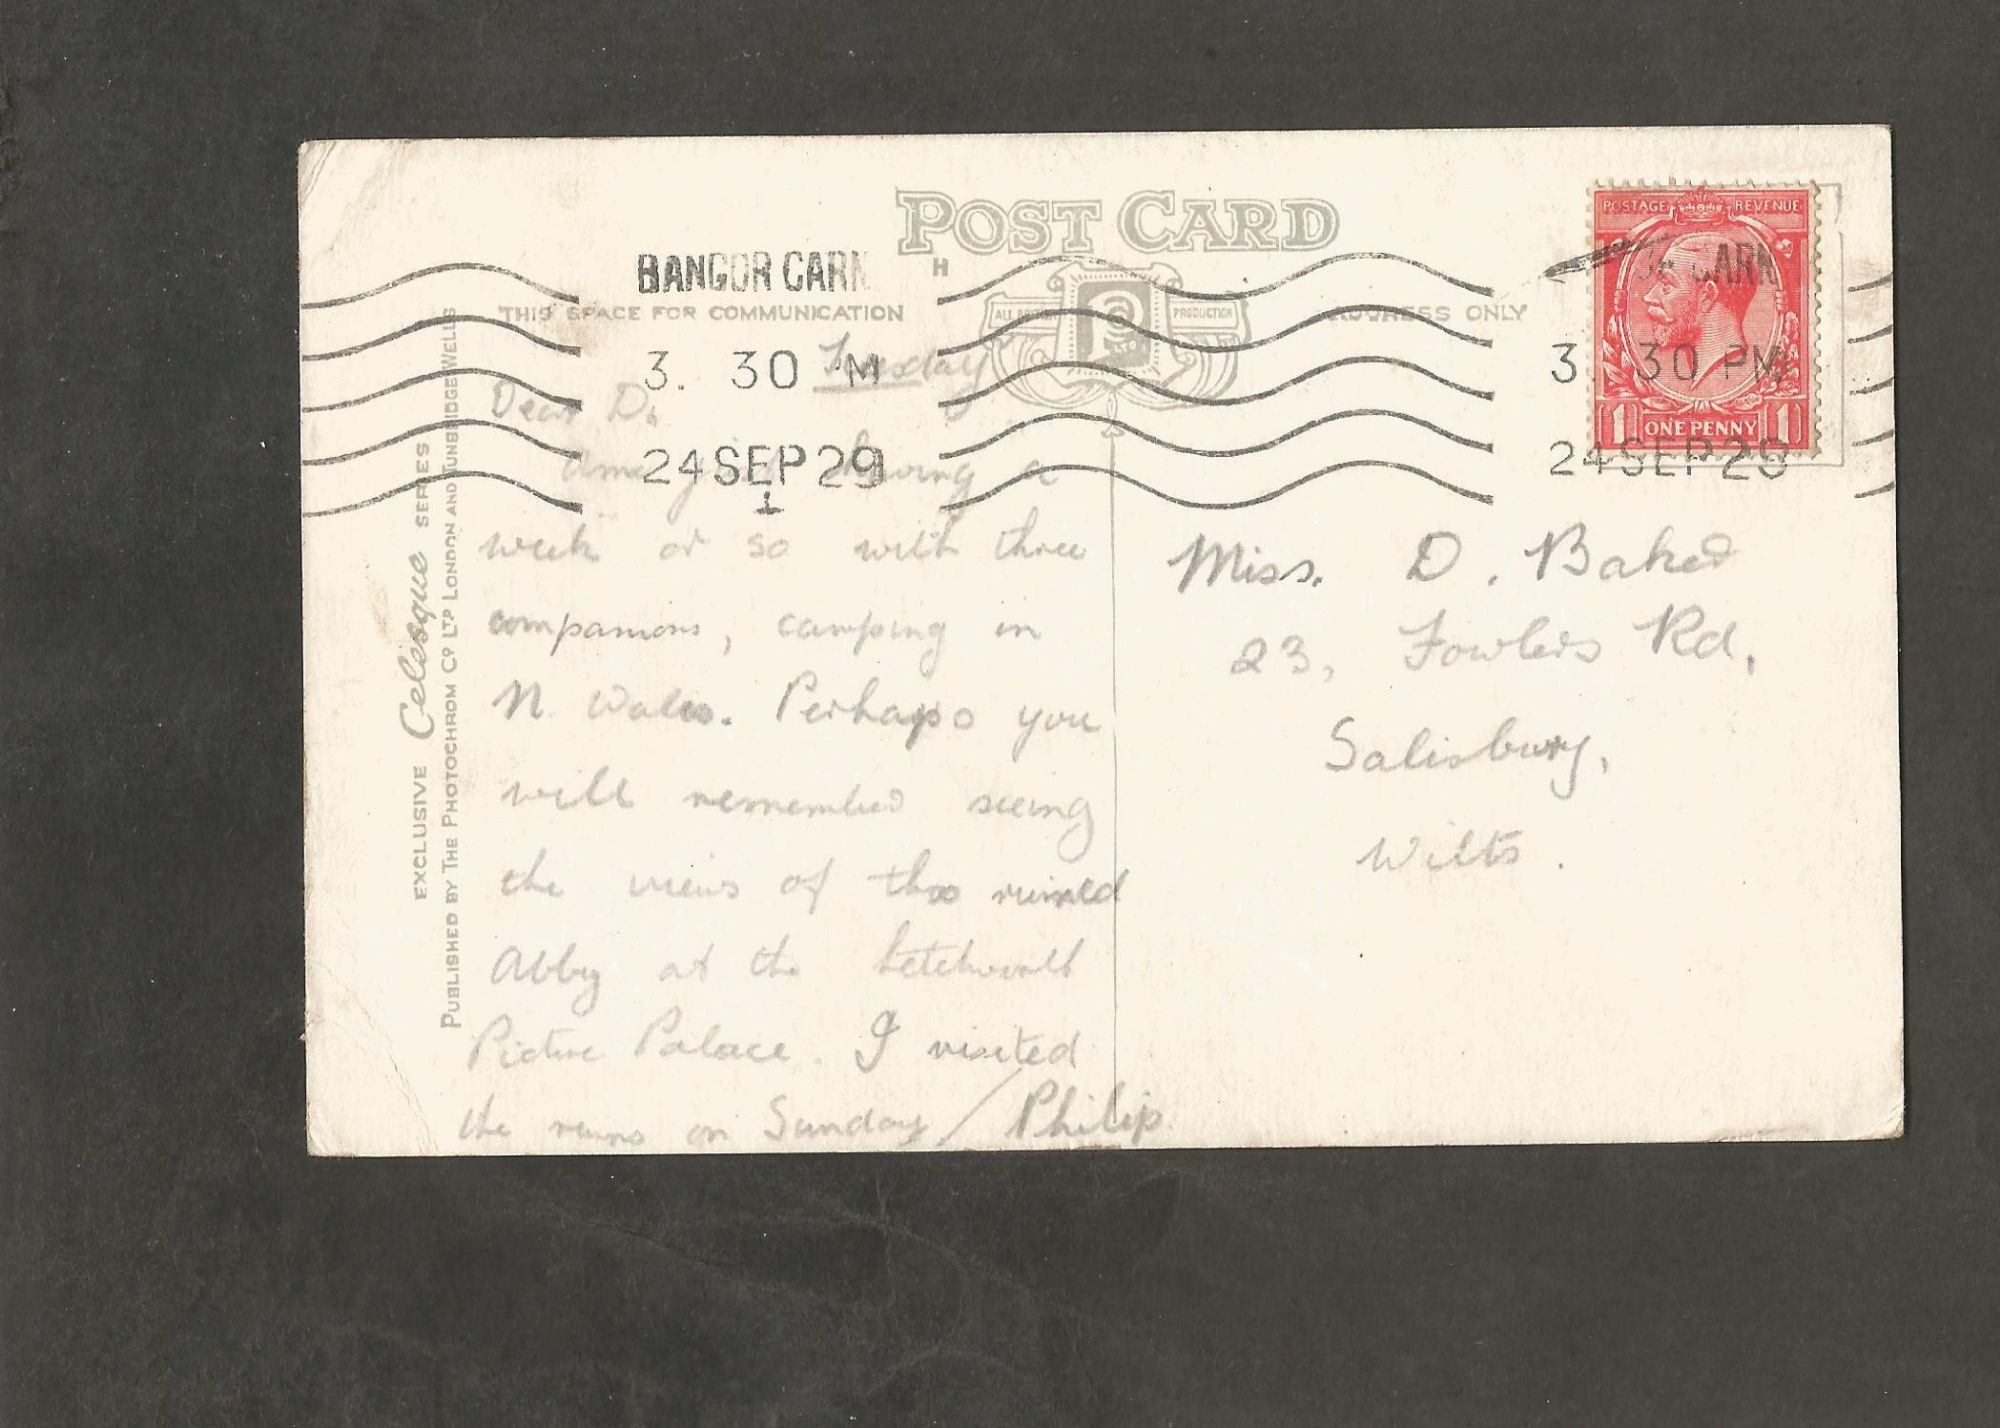 POST CARD
BANGOR CARN
H
THIS SPACE FOR COMMUNICATION
ALL BRITISH PRODUCTION
LTD
ADDRESS ONLY
POSTAGE REVENUE
CARN
3. 30 PM
24 SEP 29
1 ONE PENNY 1
3. 30 M
24 SEP 29
1
EXCLUSIVE Celesque SERIES
PUBLISHED BY THE PHOTOCHROM CO LTD LONDON AND TUNBRIDGE WELLS
Tuesday
Dear D.
having a
week or so with three
companions, camping in
N. Wales. Perhaps you
will remember seeing
the views of this ruined
Abby at the
Picture Palace. I visited
the ruins on Sunday / Philip
Miss. D. Baker
23, Fowlers Rd,
Salisbury,
Wilts.